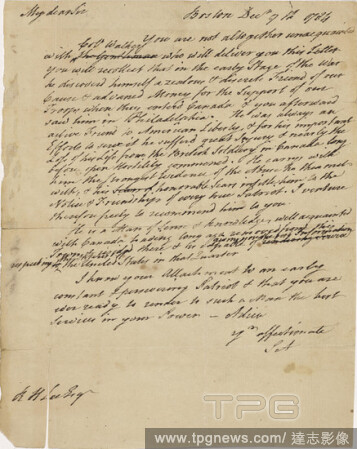 My dear Sir
Boston Decr 7th 1784
You are not altogether unacquainted
Colo Walker
with the Gentleman who will deliver you this Letter
You will recollect that in the early Stage of the War
he discovd himself a zealous & discrete Friend of our
Cause & advancd Money for the Support of our
Troops when they enterd Canada & you afterward
saw him in Philadelphia. He was always an
active Friend to American Liberty, & for his important
Efforts to serve it he sufferd great Injury & nearly the
Loss of his Life from the British Soldiery in Canada long
before open Hostility commencd. He carries with
him the strongest Evidence of the above than
with, & his honorable Scars entitle him to the
Notice & Friendship of every true Patriot. I venture
therefore freely to recommend him to you.
He is a Man of Sense & Knowledge, well acquainted
with Canada, having long
there & is capable of giving useful Information
respecting the United States in that Quarter
I know your Attachment to an early
constant & persevering Patriot & that you are
ever ready to render to such a Man the best
Services in your Power — Adieu
yrs affectionate
S A
R H Lee Esqr
TPG
www.tpgnews.com/達志影像